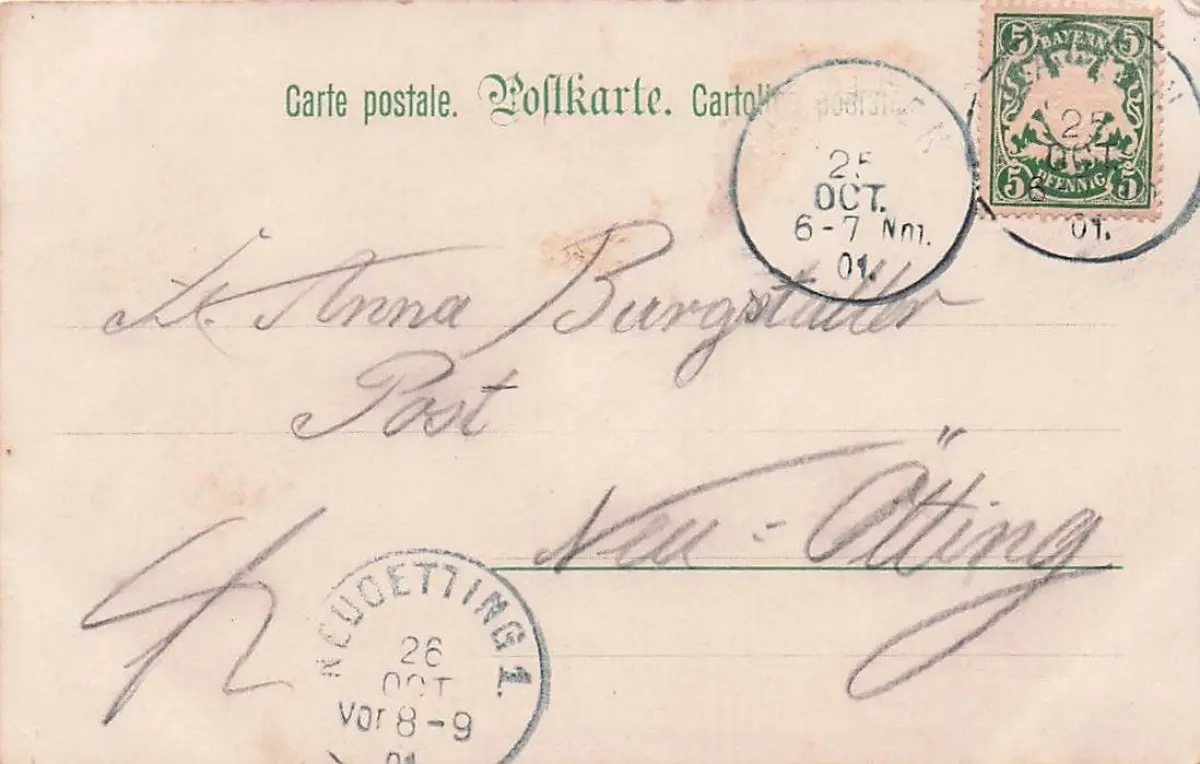 Carte postale. Postkarte. Cartolina postale
5 BAYERN 5
5 PFENNIG 5
25
OCT.
6-7 Nm.
01.
25
OCT.
6
01.
Anna Burgstaller
Post
Neu-Ötting
NEUOETTING 1.
26
OCT
Vor 8-9
01.